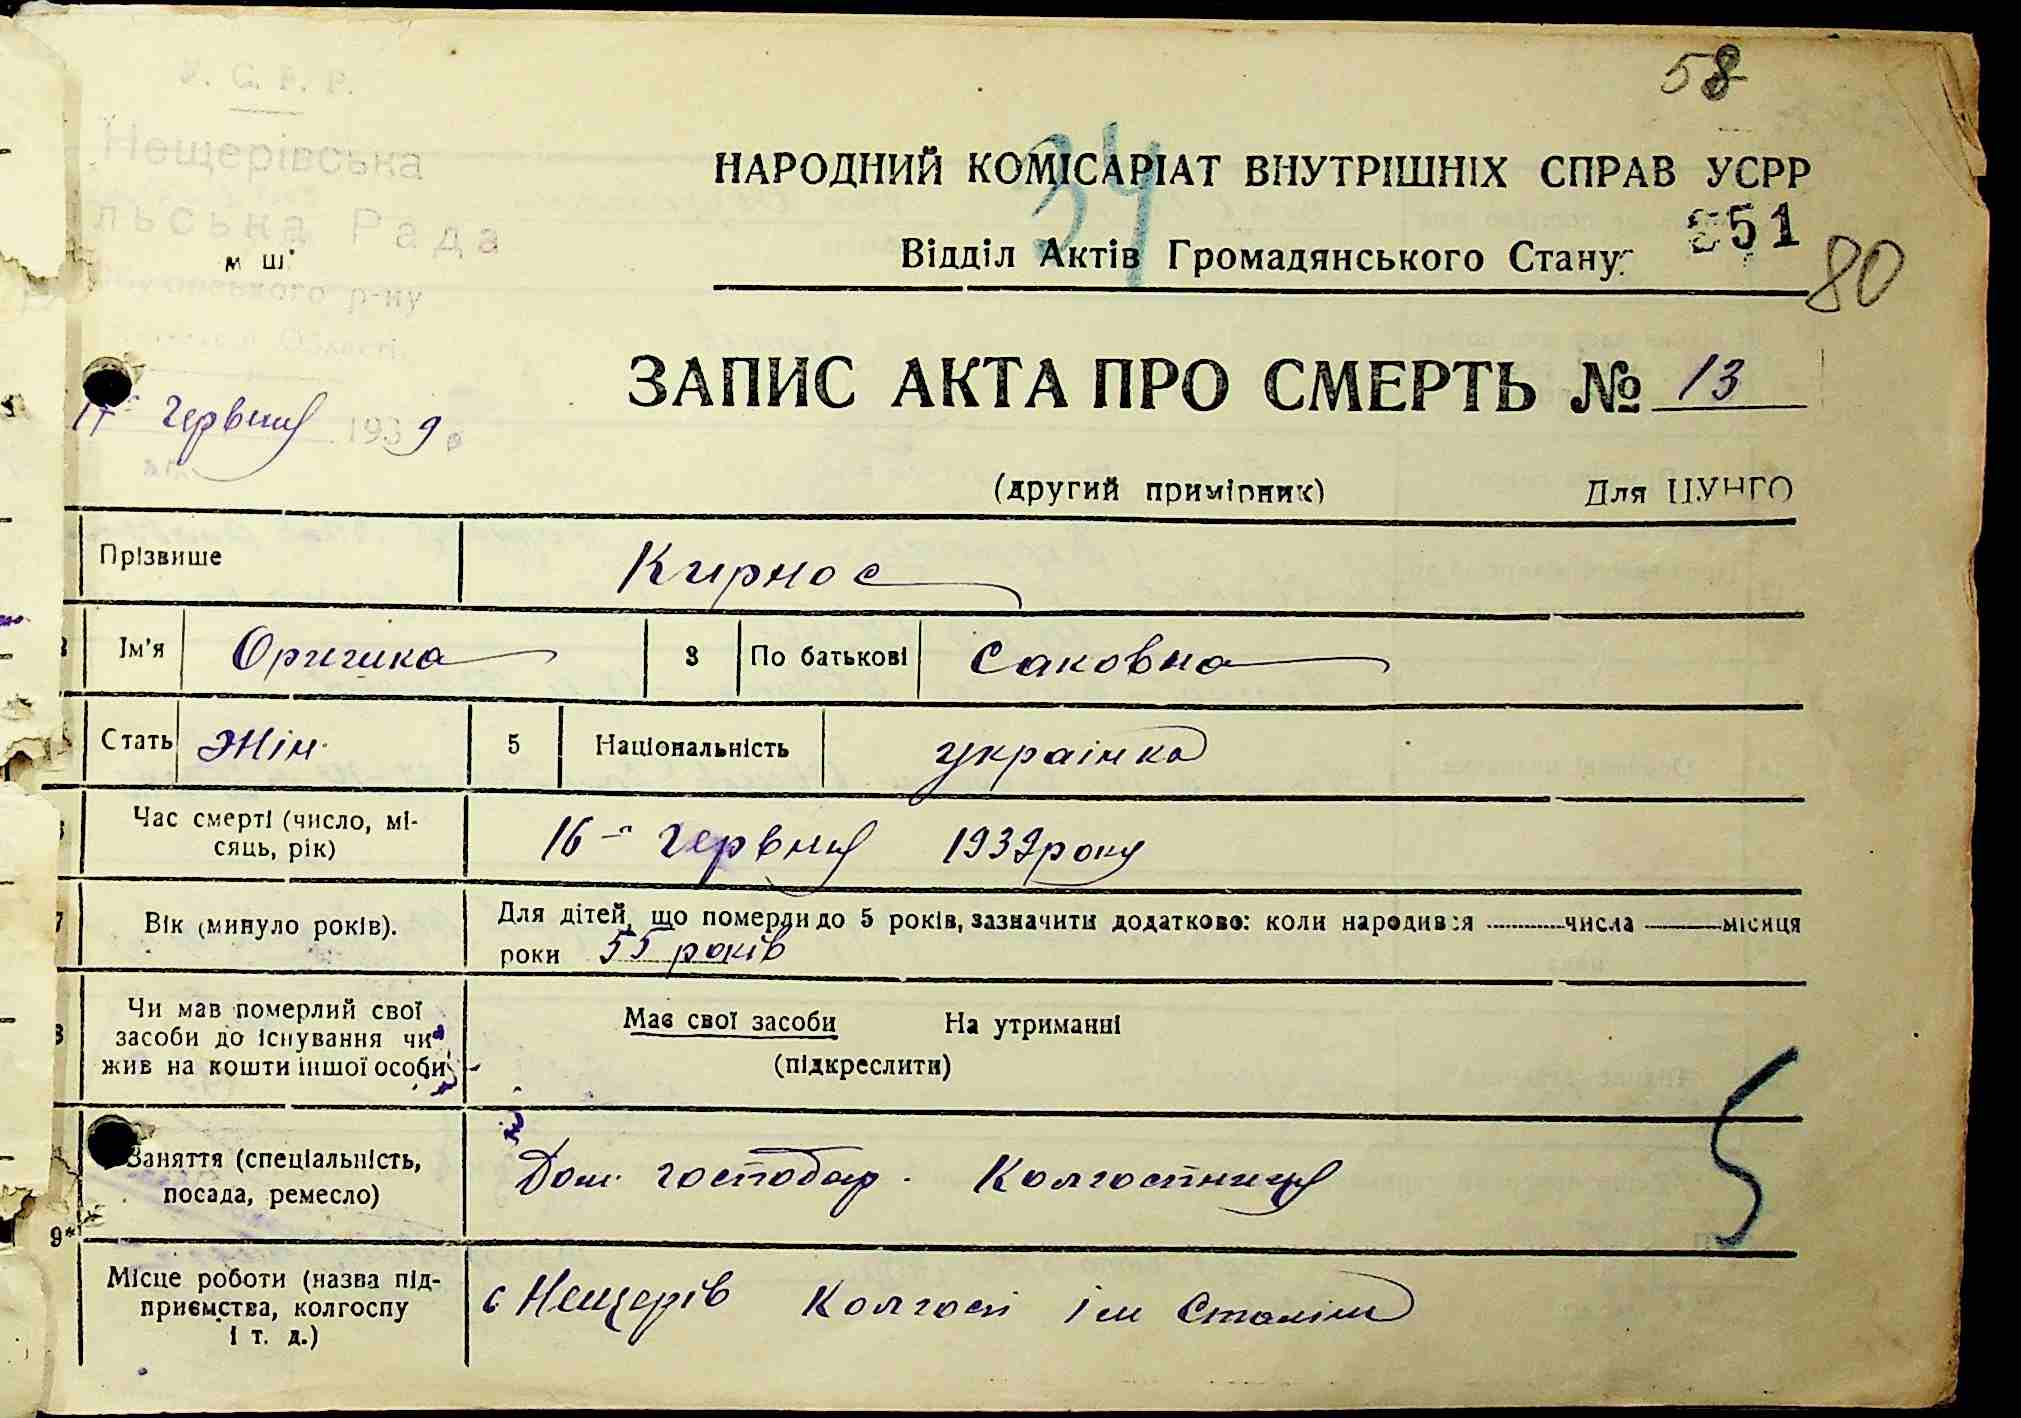 58
У. С. Р. Р.
Нещерівська
НАРОДНИЙ КОМІСАРІАТ ВНУТРІШНІХ СПРАВ УСРР
34
льська Рада
551
Відділ Актів Громадянського Стану
80
р-ну
Області
ЗАПИС АКТА ПРО СМЕРТЬ № 13
17 червня 1939
(другий примірник) Для ЦУНГО
Прізвише Кирнос
Ім'я Оришка 3 По батькові Саковна
Стать Жін. 5 Національність українка
Час смерті (число, мі-
сяць, рік)
16 червня 1939 року
7 Вік (минуло років).
Для дітей, що померли до 5 років, зазначити додатково: коли народився числа місяця
роки 55 років
Чи мав померлий свої
засоби до існування чи
жив на кошти іншої особи
Має свої засоби На утриманні
(підкреслити)
5
Заняття (спеціальність,
посада, ремесло)
Дом. господар. Колгоспниця
9*
Місце роботи (назва під-
приємства, колгоспу
і т. д.)
с Нещерів Колгосп ім Сталіна